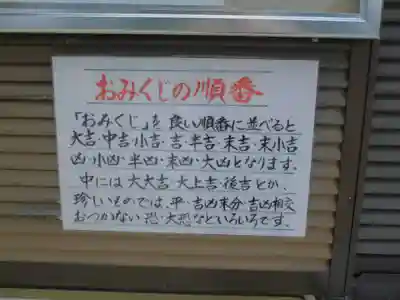 おみくじの順番
「おみくじ」を良い順番に並べると
大吉・中吉・小吉・吉・半吉・末吉・末小吉
凶・小凶・半凶・末凶・大凶となります。
中には大大吉 大上吉・後吉とか、
珍しいものでは、平・吉凶未分・吉凶相交
おつかない恐・大恐などいろいろです。